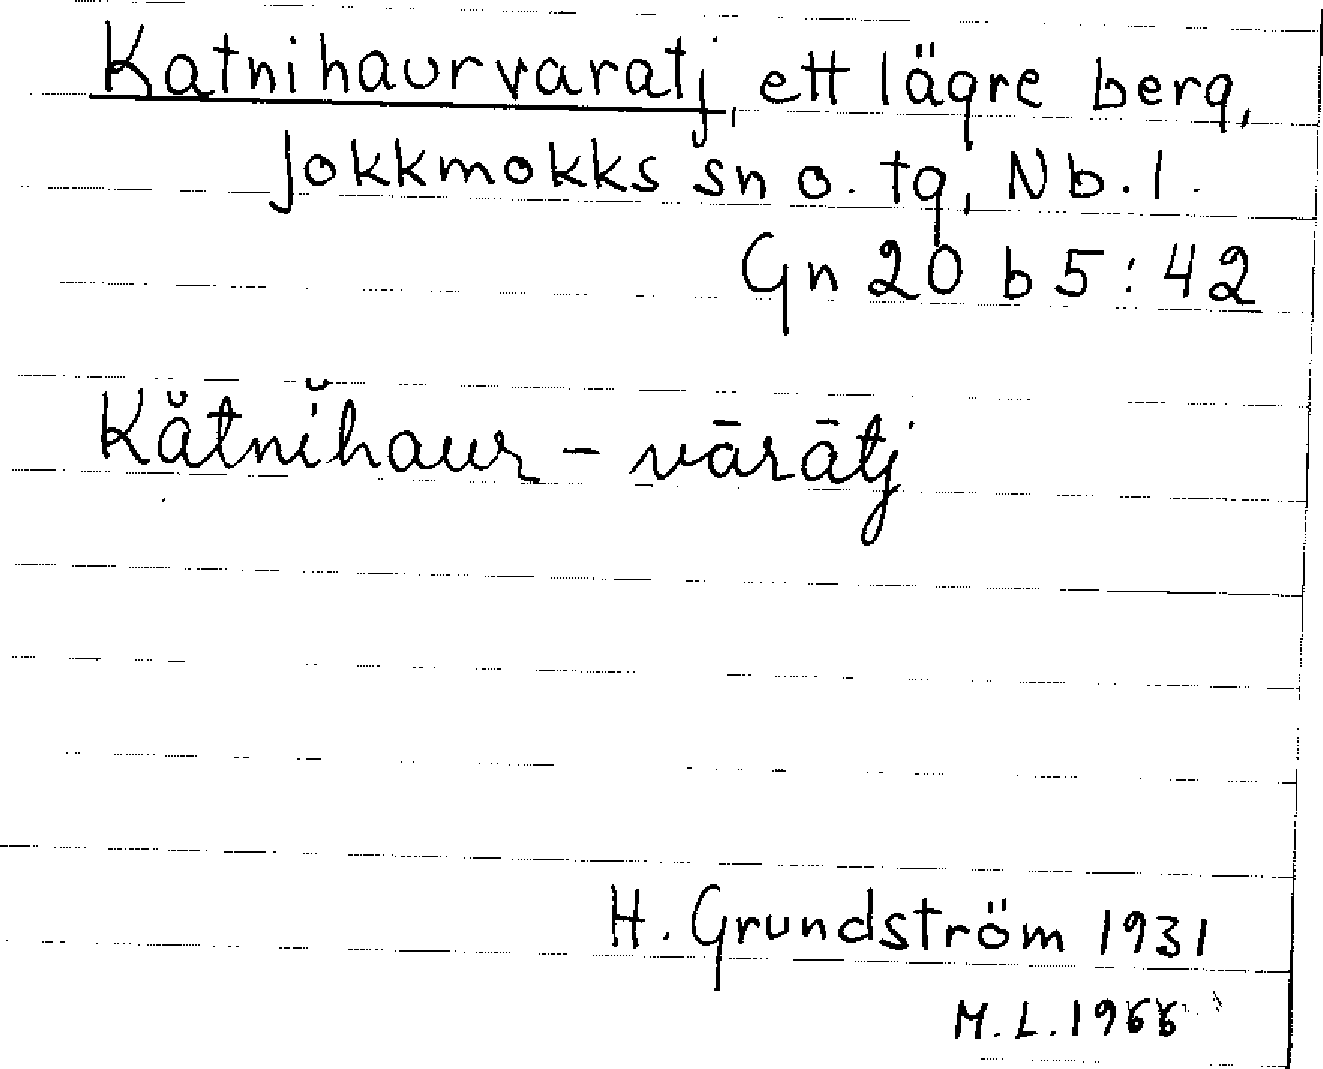 Katnihaurvaratj, ett lägre berg,
Jokkmokks sn o. tg, Nb. l.
Gn 20 b 5:42
Kătnĭhaur - vārātj
H. Grundström 1931
M. L. 1966